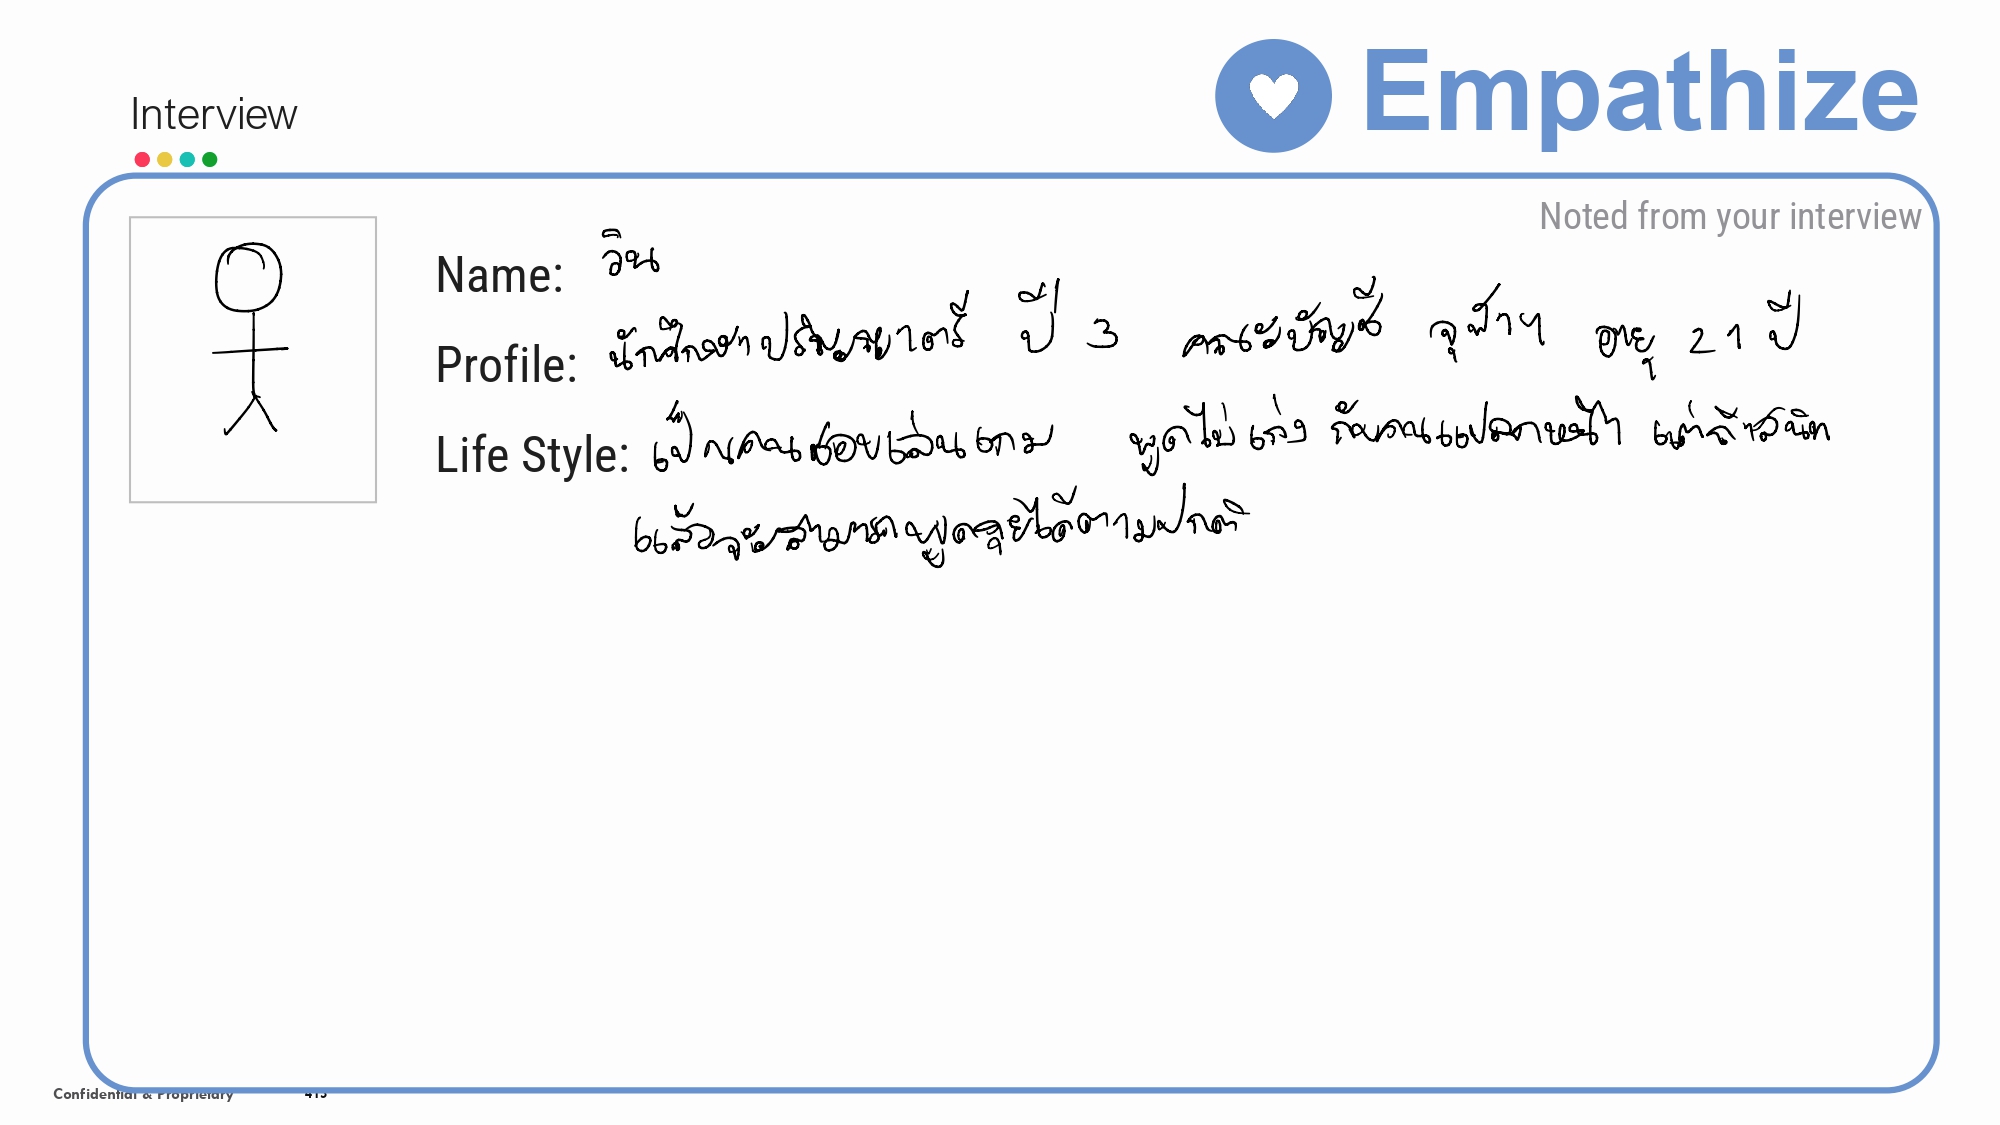 Empathize
Interview
Noted from your interview
Name: วิน
Profile: นักศึกษาปริญญาตรี ปี 3 คณะบัญชี จุฬาฯ อายุ 21 ปี
Life Style: เป็นคนชอบเล่นเกม พูดไม่เก่ง กับคนแปลกหน้า แต่ถ้าสนิท
แล้วจะสามารถพูดคุยได้ตามปกติ
Confidential & Proprietary 413